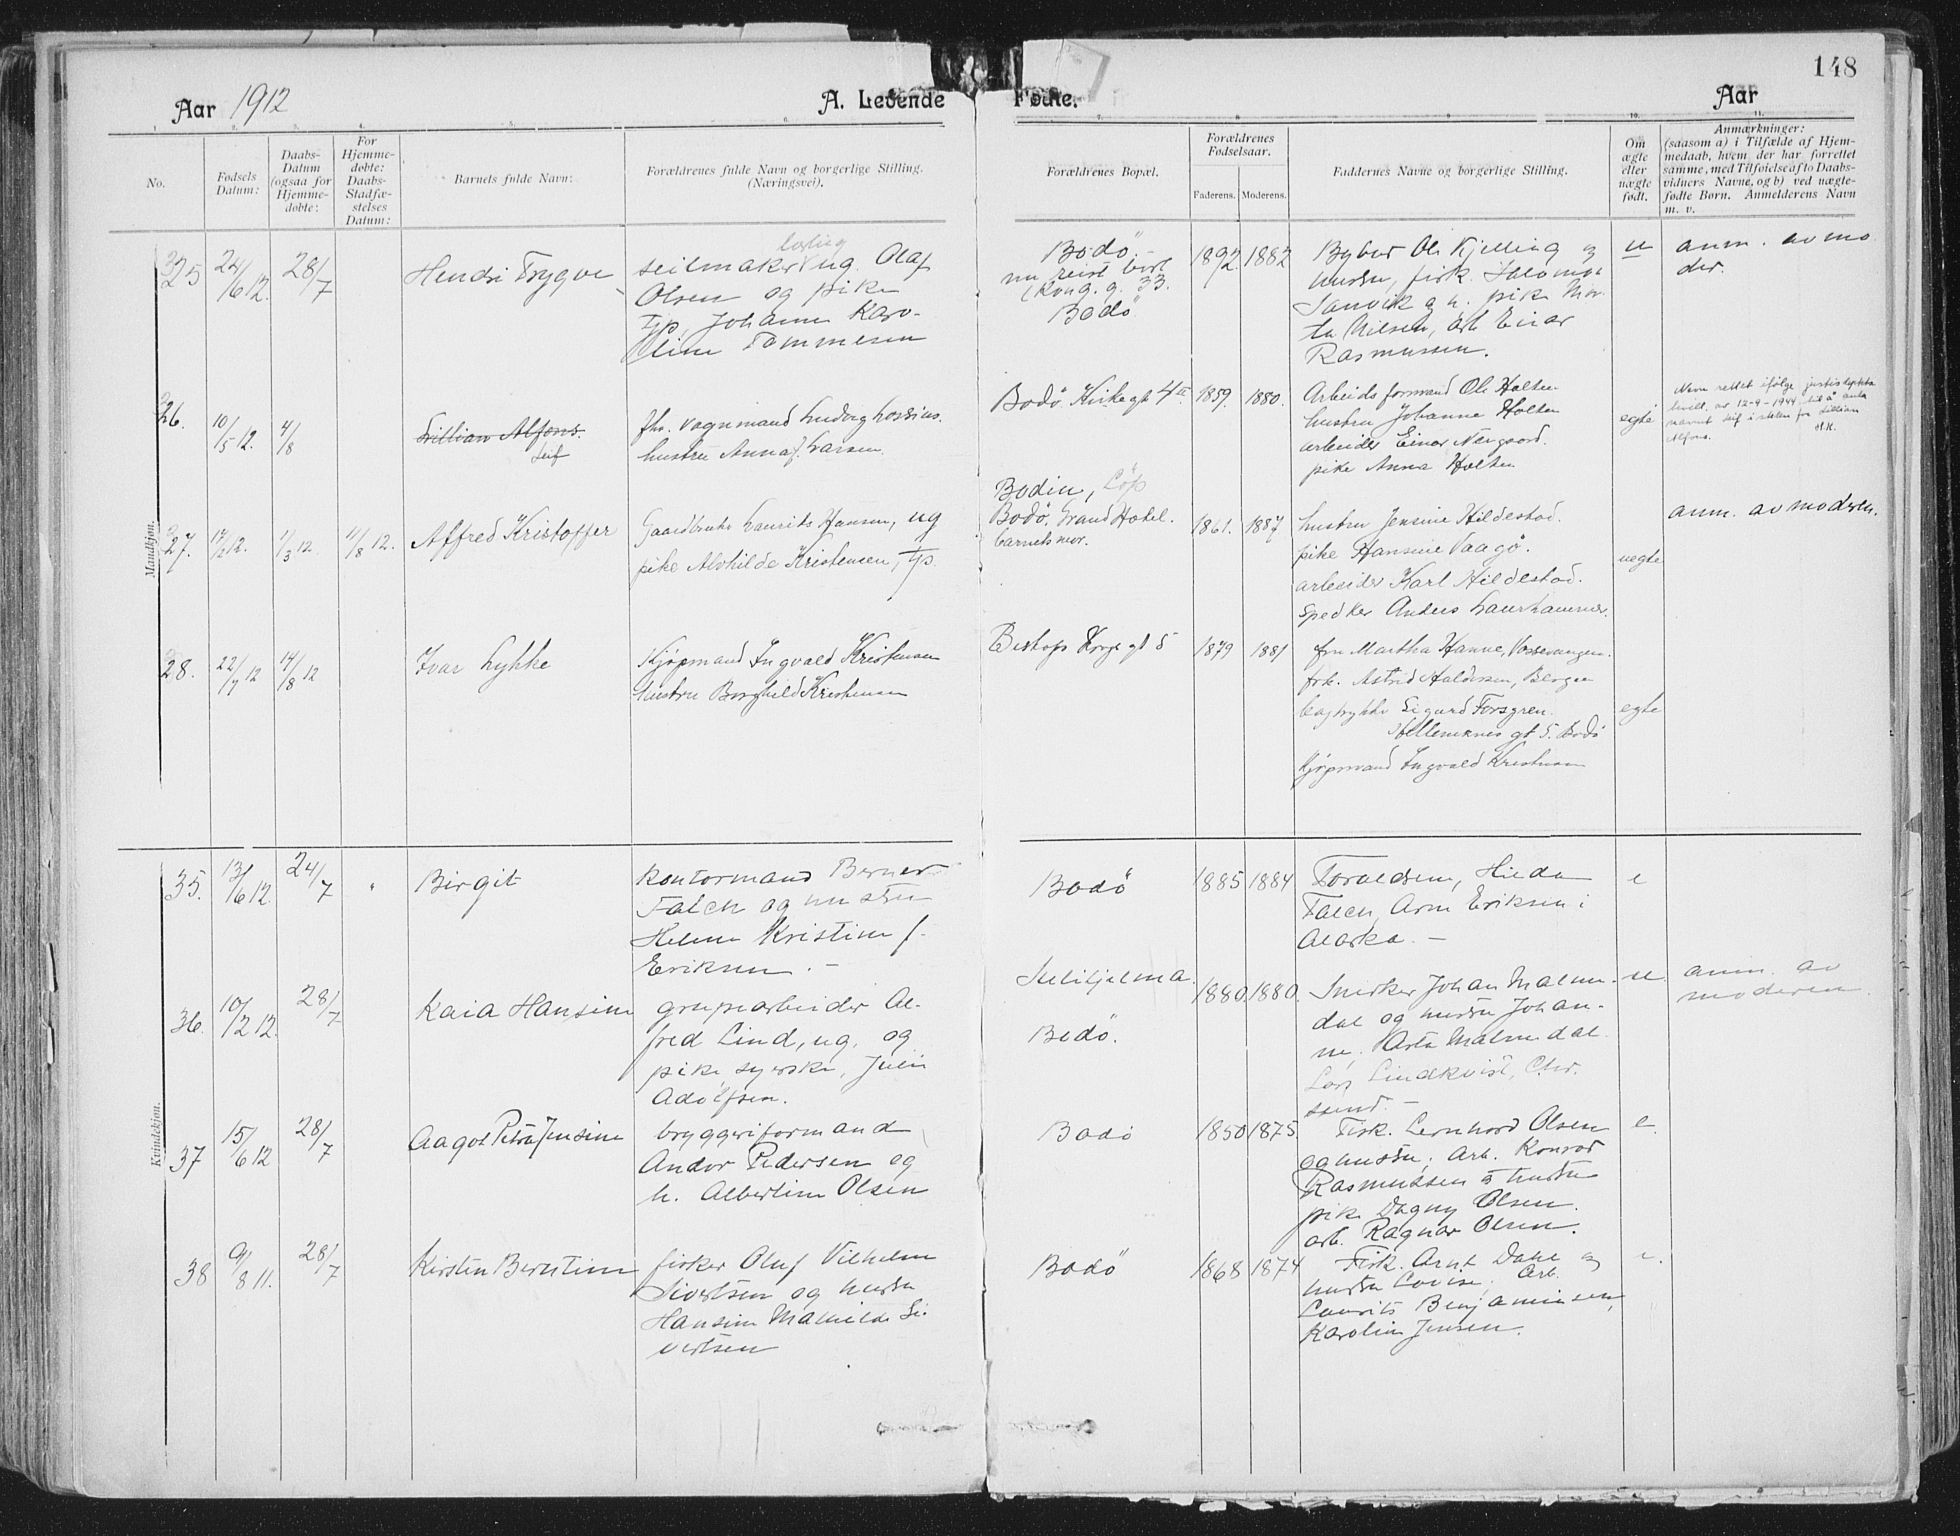 148
Aar 1912
A. Levende
Fødte.
Aar
1. 2. 3. 4. 5. 6. 7. 8. 9. 10. 11.
No.
Fødsels Datum:
Daabs-Datum (ogsaa for Hjemmedøbte:
For Hjemmedøbte: Daabs-Stadfæstelses Datum:
Barnets fulde Navn:
Forældrenes fulde Navn og borgerlige Stilling. (Næringsvei).
Forældrenes Bopæl.
Forældrenes Fødselsaar.
Faderens. Moderens.
Faddernes Navne og borgerlige Stilling.
Om ægte eller uægte født.
Anmærkninger: (saasom a) i Tilfælde af Hjemmedaab, hvem der har forrettet samme, med Tilføielse af to Daabsvidners Navne, og b) ved uægtefødte Børn. Anmelderens Navn m. v.
Mandkjøn.
25 24/6 12. 28/7 Hendri Trygve
seilmakerlærling ug. Olaf
Olsen og pike
Johanne Karo-
line Tommesen
Bodö
nu reist bort
(Kong. g. 33.
Bodö
1892. 1882
Ole Kjelling og
hustru, fisk.
Sanvik og h. pike Mar-
ta Nilsen, arb Einar
Rasmussen.
u
anm. av mo
der.
26. 10/5 12. 4/8 Lillian Alfons.
Leif
fhv. vognmand Ludvig
hustru Anna f. Larsen
Bodö Kirkegt 4 II
1859. 1880.
Arbeidsformand Ole Holten
hustru Johanne Holten
arbeider Einar
pike Anna Holten
egte
Navn rettet ifølge justisdepts
bevill. av 12-9-1944 til å anta
navnet Leif i steden for Lillian
Alfons.
27. 14/2 12. 1/3 12. 11/8 12. Alfred Kristoffer
Gaardbruker Laurits Hansen, ug
pike Alvhilde Kristensen,
Bodin, Löp
Bodö. Grand Hotel.
barnets mor.
1861. 1887
hustru Jensine Hildestad.
pike Hansine Vaagö.
arbeider Karl Hildestad.
Anders
uegte
anm. av moderen.
28. 22/7 12 14/8 12 Ivar Lykke
Kjøpmand Ingvald Kristensen
hustru Borghild Kristensen
Biskops Krogs gt 5
1879 1881
fru Martha Hanne, Vossevangen.
frk. Astrid Haldorsen, Bergen
Sigurd Forsgren.
gt 5. Bodö
Kjøpmand Ingvald Kristensen
egte
Kvindekjøn.
35. 13/6 12. 24/7 " Birgit
Kontormand Berner
Falch og hustru
Helene Kristine f.
Eriksen. -
Bodö
1885 1884
Foraldrene, Hilda
Falch, Arne Eriksen i
Alaska. -
e
36. 10/2 12. 28/7 Kaia Hansine
grupearbeider Al-
fred Lind, ug. og
pike syerske, Julie
Adolfsen.
Sulitjelma
Bodö.
1880. 1880.
Snekker Johan Malm-
dal og hustru Johan-
ne, Asta Malmedal
Lars Lindkvist, Chr.
u.
anm. av
moderen.
37 15/6 12 28/7 Aagot Petra Jensine
bryggeriformand
Andor Pedersen og
h. Albertine Olsen
Bodö
1850 1875.
Fisk. Lernhard Olsen
og hustru, Arb. Konrad
Rasmussen & hustru
pike Dagny Olsen.
arb. Ragnar Olsen.
e.
38 9/8 11. 28/7 Kirsten Berntine
fisker Oluf Vilhelm
Sivertsen og hustru
Hansine Mathilde Si-
vertsen
Bodö
1868 1874
Fisk. Arnt Dahl og
hustru Lovise, Arb.
Laurits Benjaminsen,
Karoline Jensen.
e.